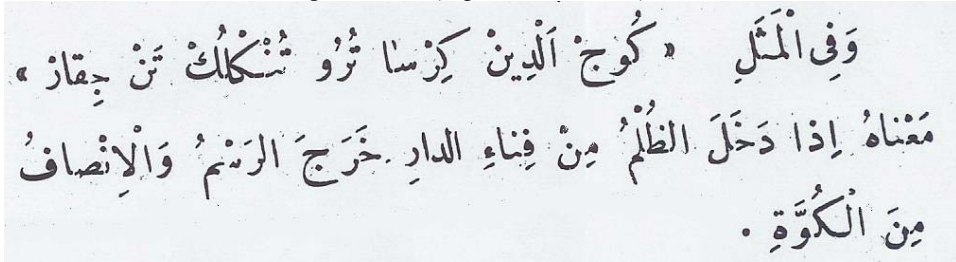 وَفِى الْمَثَلِ « كُوجْ اَلْدِينْ كِرْسَا تُرُو تُنْكْلُكْ تَنْ جِقَارْ »
مَعْنَاهُ اِذَا دَخَلَ الظُلْمُ مِنْ فِنَاءِ الدارِ خَرَجَ الرَسْمُ وَالْاِنْصافُ
مِنَ الْكُوَّةِ .